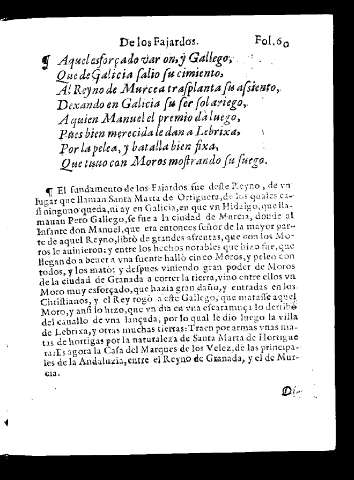 De los Fajardos. Fol. 60
¶ Aquel esforçado varon, y Gallego,
Que de Galicia salio su cimiento,
Al Reyno de Murcea trasplanta su assiento,
Dexando en Galicia su ser solariego.
A quien Manuel el premio dà luego,
Pues bien merecida le dan a Lebrixa,
Por la pelea, y batalla bien fixa,
Que tuuo con Moros mostrando su fuego.
¶ El fundamento de los Fajardos fue deste Reyno, de vn
lugar que llaman Santa Marta de Ortiguera, de los quales ca-
si ninguno queda, ni ay en Galicia, en que vn Hidalgo, que lla-
mauan Pero Gallego, se fue a la ciudad de Murcia, donde al
Infante don Manuel, que era entonces señor de la mayor par-
te de aquel Reyno, librò de grandes afrentas, que con los Mo-
ros le auinieron: y entre los hechos notables que hizo fue, que
llegando a beuer a vna fuente hallò cinco Moros, y peleò con
todos, y los matò: y despues viniendo gran poder de Moros
de la ciudad de Granada a correr la tierra, vino entre ellos vn
Moro muy esforçado, que hazia gran daño, y entradas en los
Christianos, y el Rey rogò a este Gallego, que matasse aquel
Moro, y assi lo hizo, que vn dia en vna escaramuça lo deribò
del cauallo de vna lançada, por lo qual le dio luego la villa
de Lebrixa, y otras muchas tierras: Traen por armas vnas ma-
tas de hortigas por la naturaleza de Santa Marta de Hortigue
ra: Es agora la Casa del Marques de los Velez, de las principa-
les de la Andaluzia, entre el Reyno de Granada, y el de Mur-
cia.